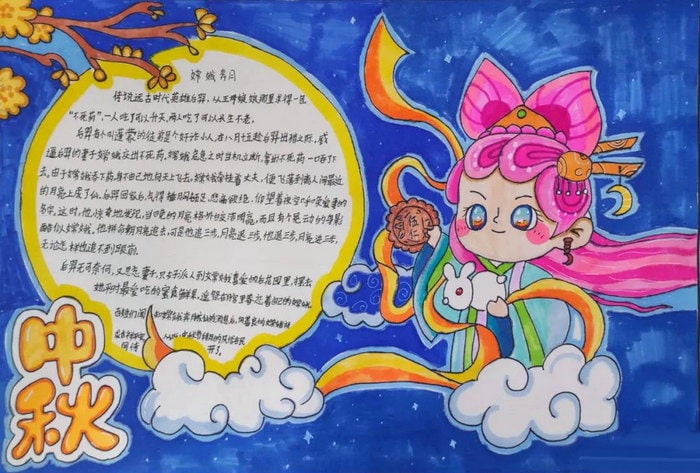 嫦娥奔月
传说远古时代英雄后羿,从王母娘娘那里求得一包
“不死药”,一人吃了可以升天,两人吃了可以长生不老。
后羿有个叫逢蒙的徒弟是个奸诈小人,在八月十五趁后羿出猎之际,威
逼后羿的妻子嫦娥交出不死药,嫦娥危急之时当机立断,拿出不死药一口吞下
去,由于嫦娥吞下药,身不由己地向天上飞去,嫦娥牵挂着丈夫,便飞落到离人间最近
的月亮上成了仙。后羿回家后,气得捶胸顿足,悲痛欲绝,仰望着夜空呼唤爱妻的
名字,这时,他惊奇地发现,当晚的月亮格外皎洁明亮,而且有个晃动的身影
酷似嫦娥,他拼命朝月亮追去,可是他追三步,月亮退三步,他退三步,月亮进三步,
无论怎样也追不到跟前。
后羿无可奈何,又思念妻子,只好派人到嫦娥喜爱的后花园里,摆上
她平时最爱吃的蜜食鲜果,遥祭在月宫里眷恋着自己的嫦娥
百姓们闻知嫦娥奔月成仙的消息后,
中秋
五仁